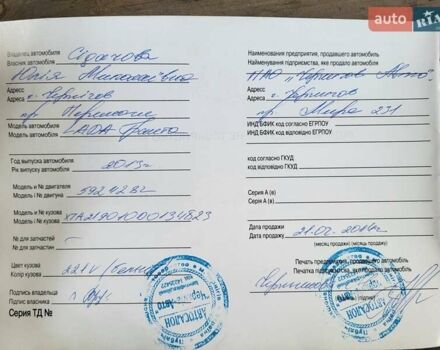 auto RIA
Владелец автомобиля
Власник автомобіля Сідачова
Юлія Миколаївна
Адрес
Адреса г. Чернігов
пр
Модель автомобиля
Модель автомобіля LADA Granta
Год выпуска автомобиля
Рік випуску автомобіля 2013г
Модель и № двигателя
Модель і № двигуна 5924282
Модель и № кузова
Модель і № кузова XTA219010D0134823
№ для запчастей
№ для запчастин –
Цвет кузова
Колір кузова 221V
Подпись владельца
Підпис власника
Серия ТД №
Наименования предприятия, продавшего автомобиль
Найменування підприємства, яке продало автомобіль
ПАО „Чернигов Авто"
Адрес
Адреса г. Чернигов
пр. Мира 231
ИНД БФИК код согласно ЕГРПОУ
ІНД БФІК код відповідно ЕГРПОУ
код согласно ГКУД
код відповідно ГКУД
Серия А (в)
Серія А (в)
Дата продажи
Дата продажу 21.02.2014г
(месяц продажи) (місяць продажу)
Печать предприятия, продавшего автомобиль
Печатка підприємства, яке продало автомобіль
Чернигов
АВТОСАЛОН
АВТОСАЛОН